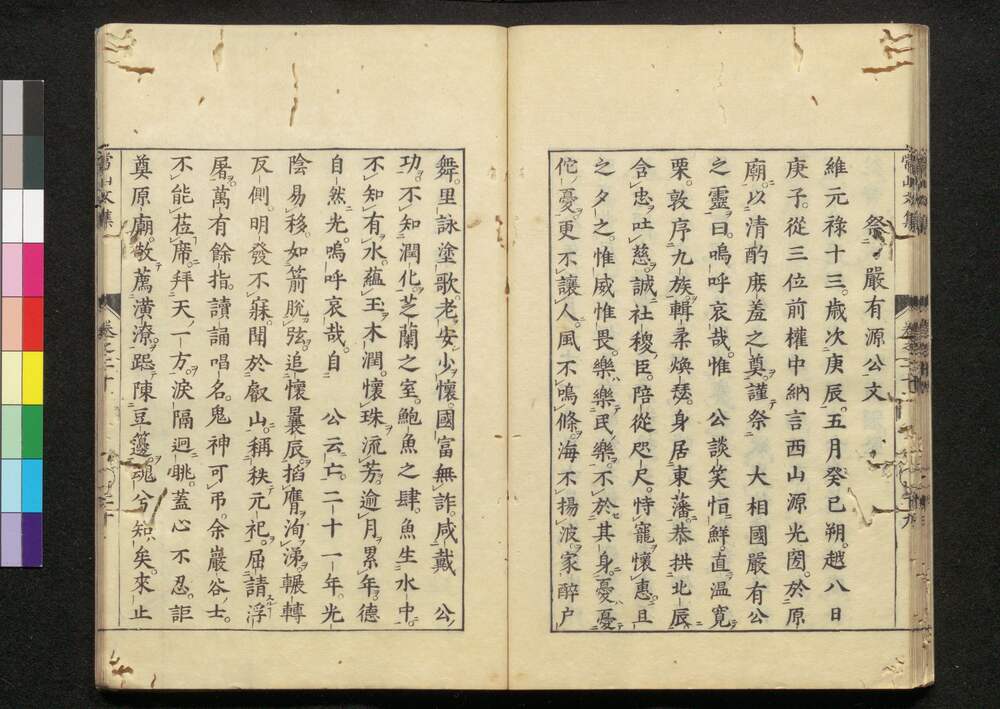 祭嚴有源公文
維元祿十三歲次庚辰五月癸巳朔越八日
庚子從三位前權中納言西山源光圀於原
廟以清酌庶羞之奠謹祭　大相國嚴有公
之靈曰嗚呼哀哉惟　公談笑恒鮮直溫寬
栗敦序九族輯柔煥瑟身居東藩恭拱北辰
含忠吐慈誠社稷臣陪從咫尺恃寵懷惠旦
之夕之惟威惟畏樂樂民樂不於其身憂憂
佗憂更不讓人風不鳴條海不揚波家醉户
舞里詠塗歌老安少懷國富無詐咸戴　公
功不知潤化芝蘭之室鮑魚之肆魚生水中
不知有水蘊玉木潤懷珠流芳逾月累年德
自然光嗚呼哀哉自　公云亡二十一年光
陰易移如箭脫弦追懷曩辰搯膺洵涕輾轉
反側明發不寐聞於叡山稱秩元祀屈請浮
屠萬有餘指讀誦唱名鬼神可弔余巖谷士
不能莅席拜天一方淚隔迥眺蓋心不忍詎
奠原廟敬薦潢潦跽陳豆籩魂兮知矣來止
常山文集
卷之二十